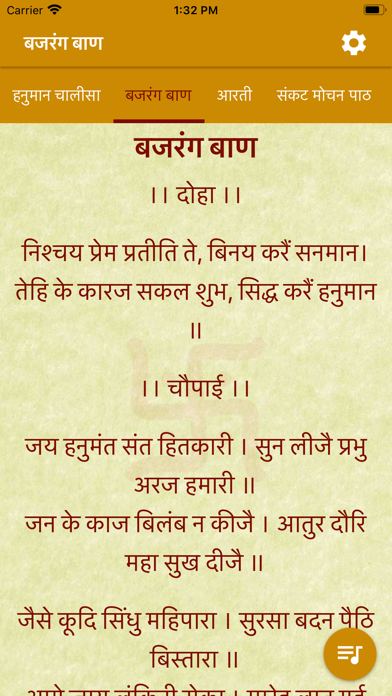 Carrier 1:32 PM
बजरंग बाण
हनुमान चालीसा बजरंग बाण आरती संकट मोचन पाठ
बजरंग बाण
।। दोहा ।।
निश्चय प्रेम प्रतीति ते, बिनय करैं सनमान।
तेहि के कारज सकल शुभ, सिद्ध करैं हनुमान
॥
।। चौपाई ।।
जय हनुमंत संत हितकारी । सुन लीजै प्रभु
अरज हमारी ॥
जन के काज बिलंब न कीजै । आतुर दौरि
महा सुख दीजै ॥
जैसे कूदि सिंधु महिपारा । सुरसा बदन पैठि
बिस्तारा ॥